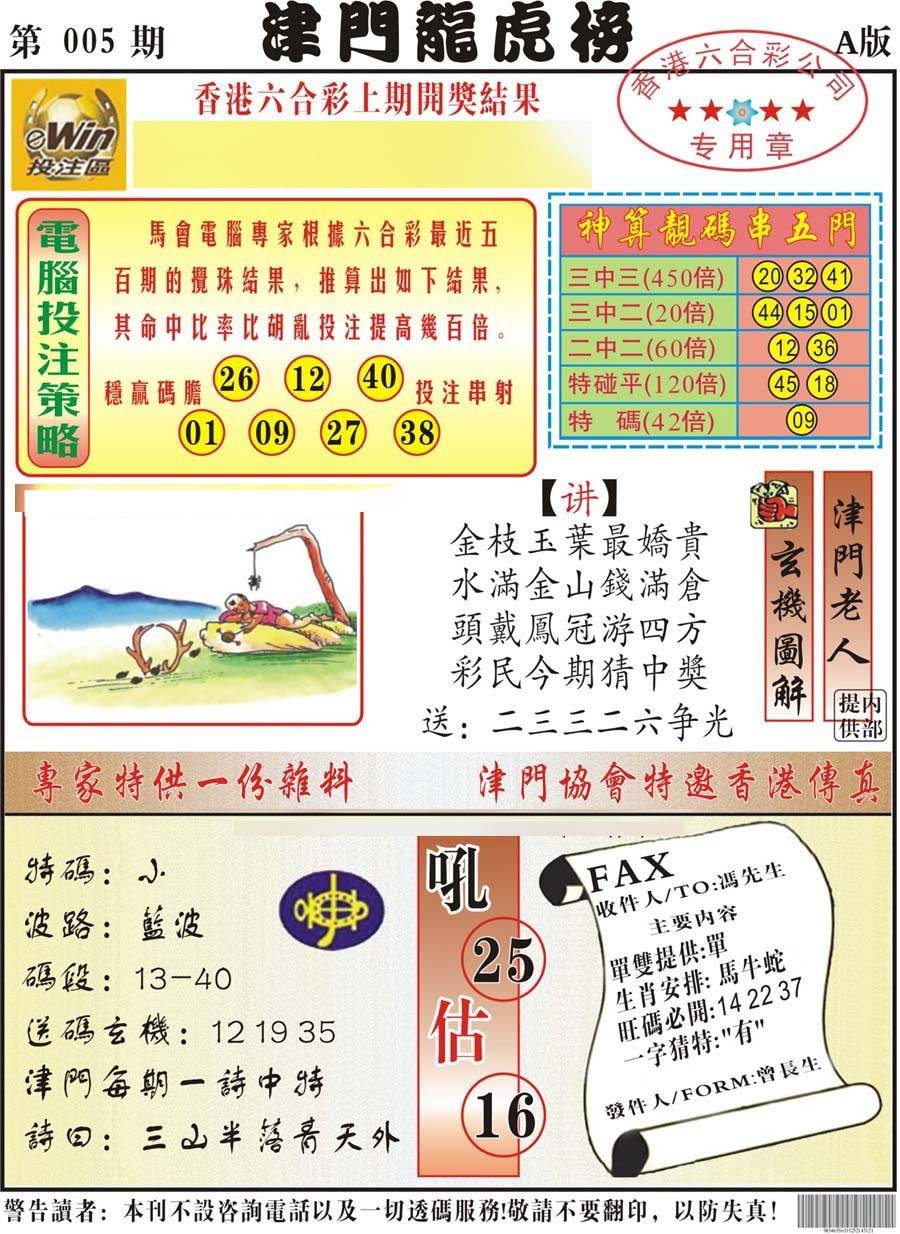 第 005 期
津門龍虎榜
A版
eWin
投注區
香港六合彩上期開獎結果
香港六合彩公司
专用章
電腦投注策略
馬會電腦專家根據六合彩最近五
百期的攪珠結果，推算出如下結果，
其命中比率比胡亂投注提高幾百倍。
穩贏碼膽 26 12 40 投注串射
01 09 27 38
神算靚碼串五門
三中三(450倍) 20 32 41
三中二(20倍) 44 15 01
二中二(60倍) 12 36
特碰平(120倍) 45 18
特 碼(42倍) 09
【讲】
金枝玉葉最嬌貴
水滿金山錢滿倉
頭戴鳳冠游四方
彩民今期猜中獎
送：二三三二六争光
玄機圖解
津門老人
内部提供
專家特供一份雜料
津門協會特邀香港傳真
特碼：小
波路：藍波
碼段：13—40
送碼玄機：12 19 35
津門每期一詩中特
詩曰：三山半落青天外
吼
25
估
16
FAX
收件人/TO:馮先生
主要内容
單雙提供:單
生肖安排: 馬牛蛇
旺碼必開:14 22 37
一字猜特:"有"
發件人/FORM:曾長生
警告讀者：本刊不設咨詢電話以及一切透碼服務!敬請不要翻印，以防失真!